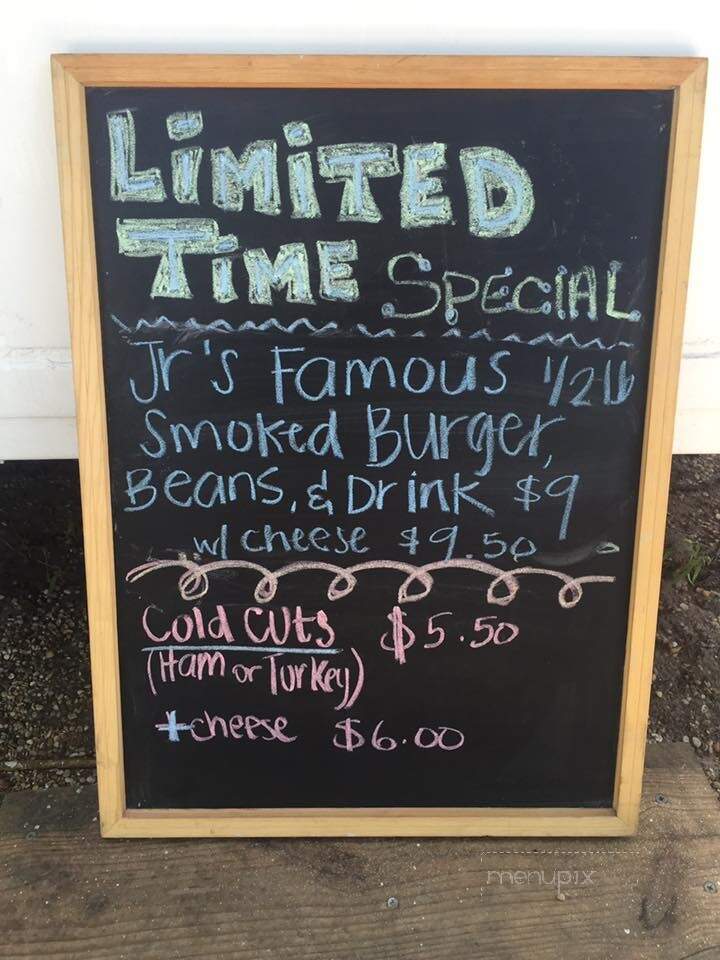 LiMiTED
TiME SPECIAL
Jr's Famous 1/2 lb
Smoked Burger,
Beans, & Drink $9
w/ cheese $9.50
Cold Cuts $5.50
(Ham or Turkey)
+cheese $6.00
menupix